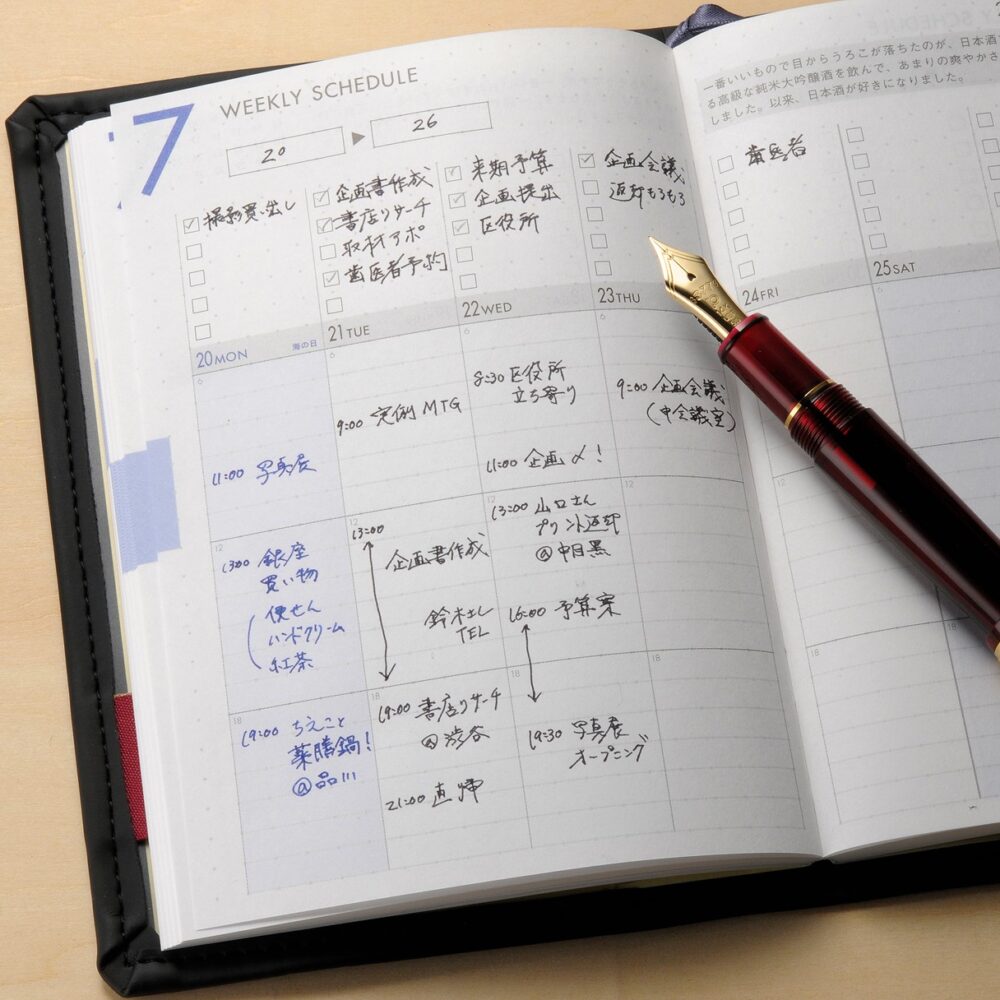 7
WEEKLY SCHEDULE
20
26
一番いいもので目からうろこが落ちたのが、日本酒
る高級な純米大吟醸酒を飲んで、あまりの爽やかさ
しました。以来、日本酒が好きになりました。
撮影買い出し
企画書作成
書店リサーチ
取材アポ
歯医者予約
来期予算
企画提出
区役所
企画会議
返却もろもろ
歯医者
20 MON
海の日
11:00 写真展
13:00 銀座
買い物
便せん
ハンドクリーム
紅茶
19:00 ちえこと
薬膳鍋!
@品川
21 TUE
9:00 定例 MTG
13:00
企画書作成
鈴木さん
TEL
19:00 書店リサーチ
@渋谷
21:00 直帰
22 WED
8:30 区役所
立ち寄り
11:00 企画〆!
13:00 山口さん
プリント返却
@中目黒
16:00 予算案
19:30 写真展
オープニング
23 THU
9:00 企画会議
(中会議室)
24 FRI
25 SAT
6
6
6
6
12
12
12
12
12
18
18
18
18
18